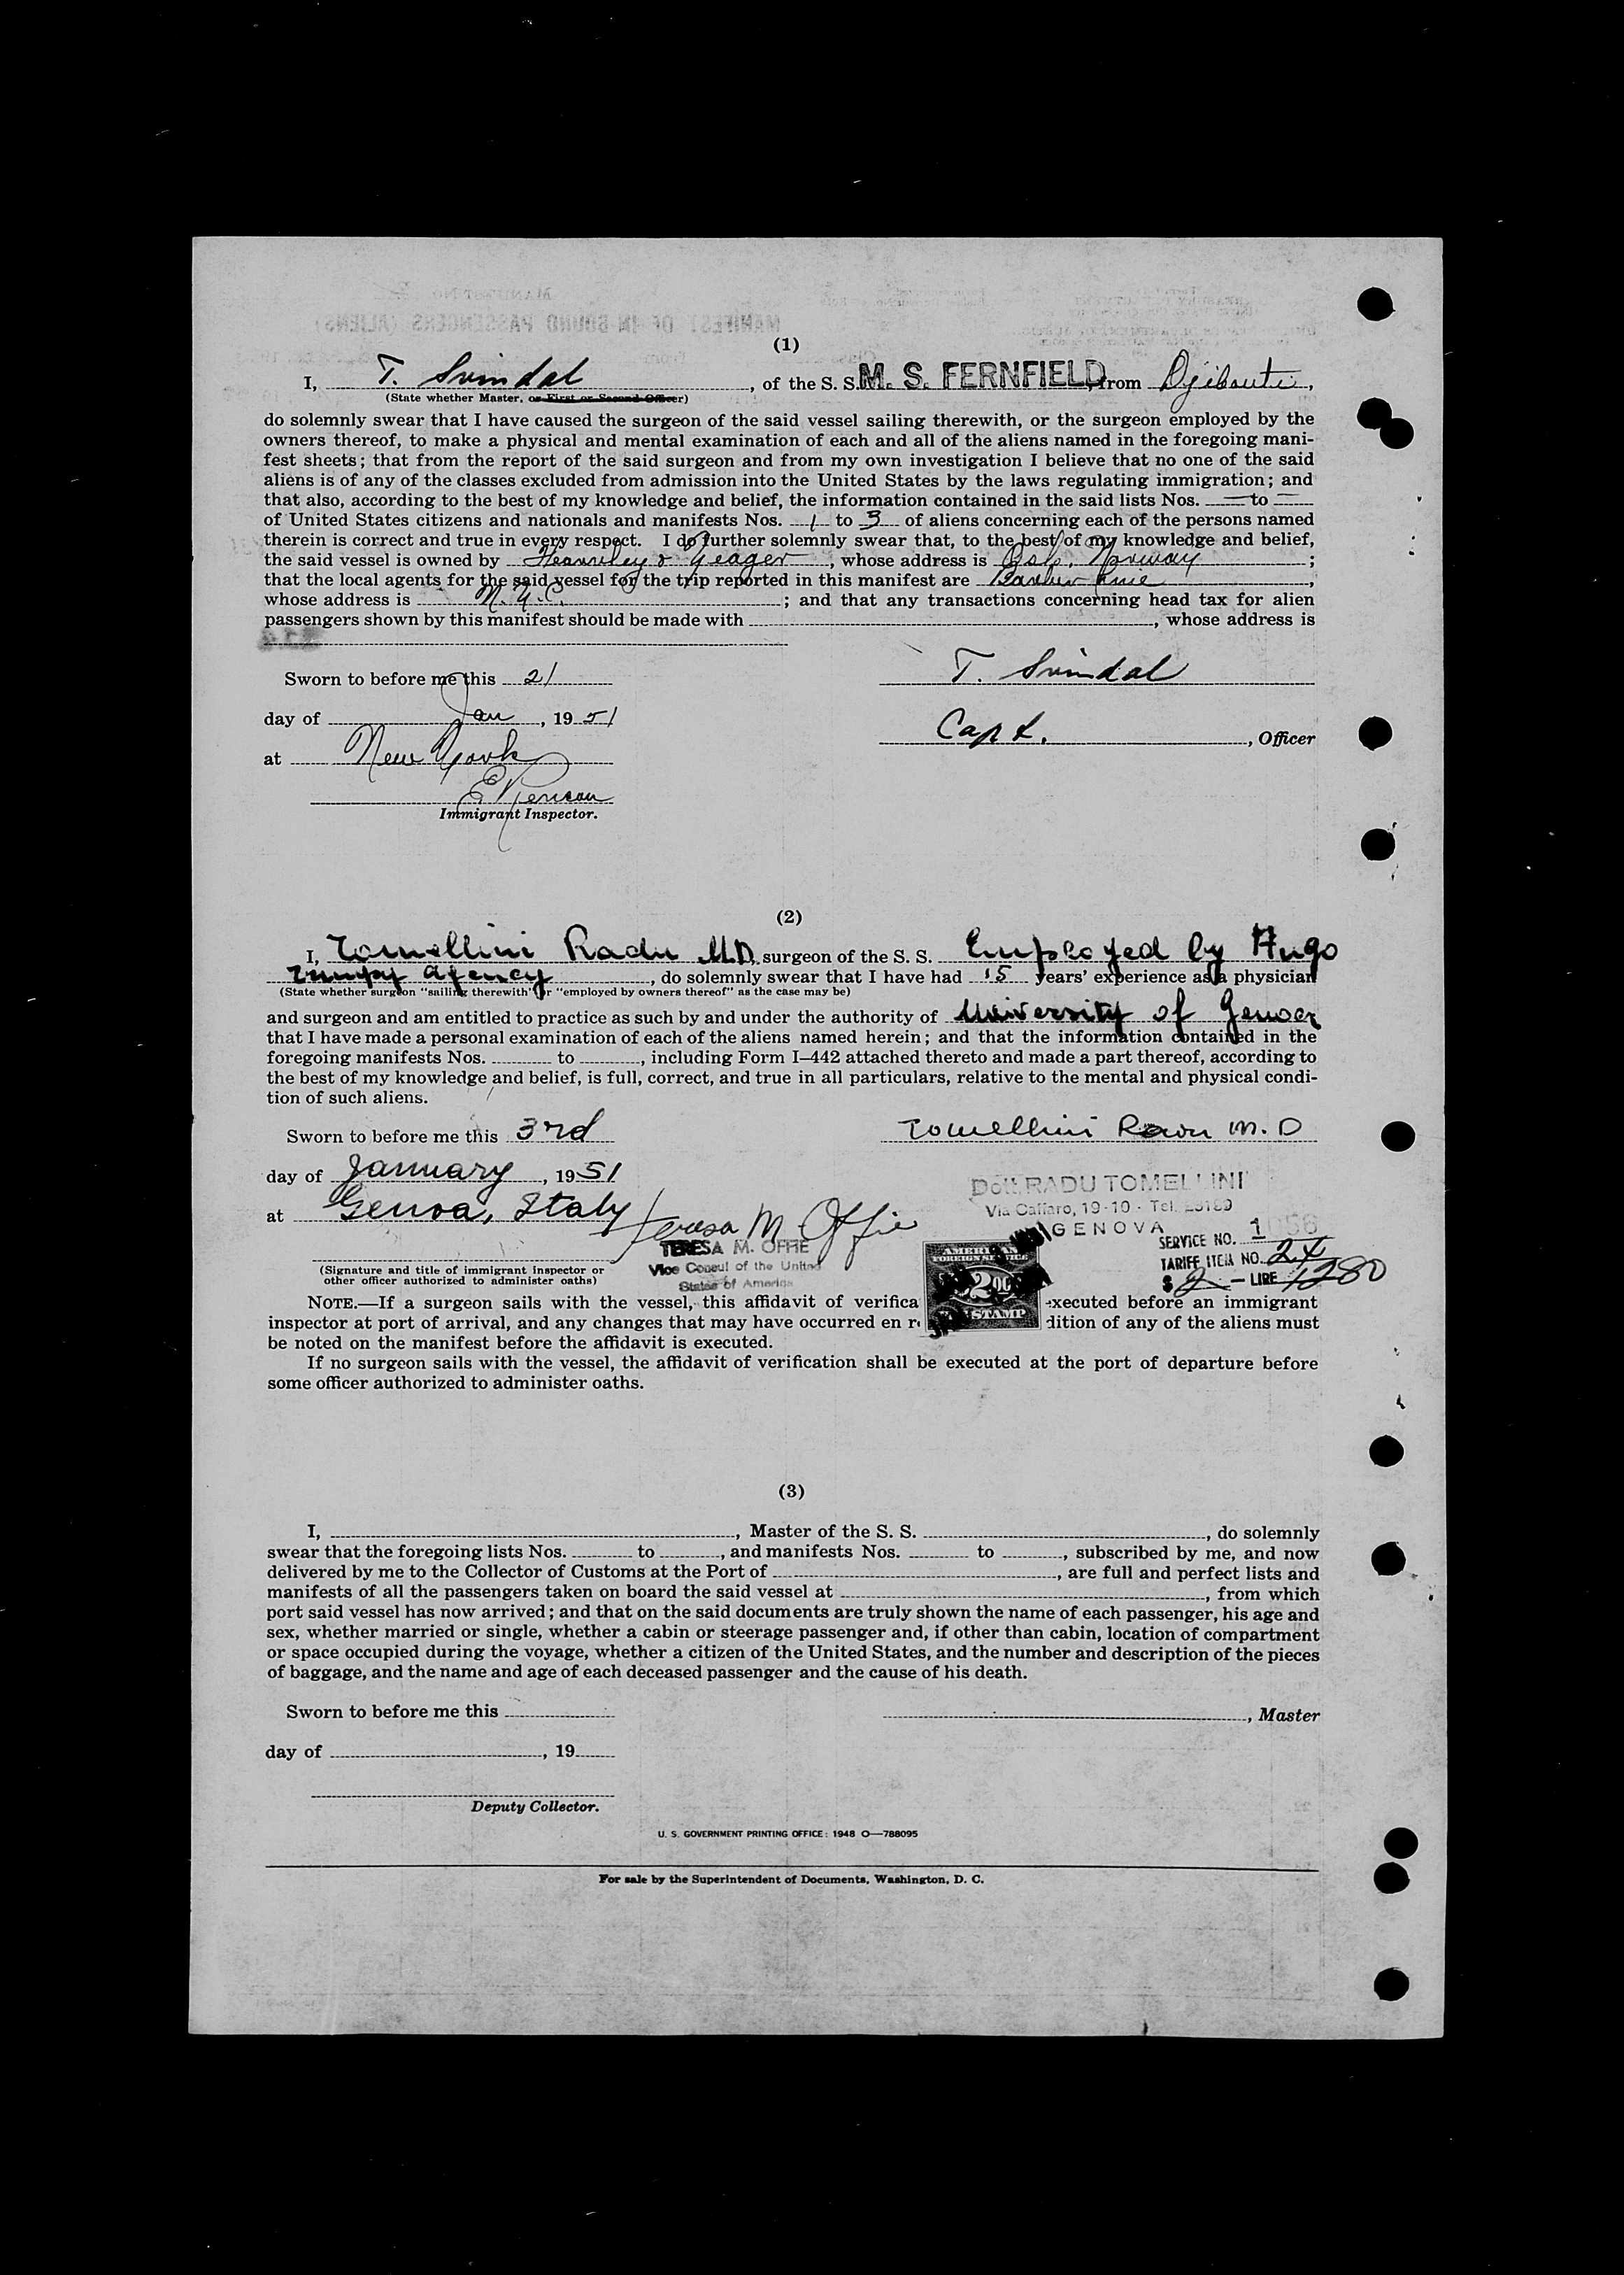 (1)
I, T. Svindal, of the S. S. M. S. FERNFIELD, from Djibouti,
(State whether Master, or First or Second Officer)
do solemnly swear that I have caused the surgeon of the said vessel sailing therewith, or the surgeon employed by the
owners thereof, to make a physical and mental examination of each and all of the aliens named in the foregoing mani-
fest sheets; that from the report of the said surgeon and from my own investigation I believe that no one of the said
aliens is of any of the classes excluded from admission into the United States by the laws regulating immigration; and
that also, according to the best of my knowledge and belief, the information contained in the said lists Nos. — to —
of United States citizens and nationals and manifests Nos. 1 to 3 of aliens concerning each of the persons named
therein is correct and true in every respect. I do further solemnly swear that, to the best of my knowledge and belief,
the said vessel is owned by Fearnley & Yeager, whose address is Oslo, Norway;
that the local agents for the said vessel for the trip reported in this manifest are Barber Line,
whose address is N.Y.C.; and that any transactions concerning head tax for alien
passengers shown by this manifest should be made with , whose address is
Sworn to before me this 21
T. Svindal
day of Jan, 1951
Capt., Officer
at New York
Immigrant Inspector.
(2)
I, Tomellini Radu M.D. surgeon of the S. S. Employed by Hugo
Trumpy Agency, do solemnly swear that I have had 15 years' experience as a physician
(State whether surgeon "sailing therewith" or "employed by owners thereof" as the case may be)
and surgeon and am entitled to practice as such by and under the authority of University of Genoa
that I have made a personal examination of each of the aliens named herein; and that the information contained in the
foregoing manifests Nos. to , including Form I–442 attached thereto and made a part thereof, according to
the best of my knowledge and belief, is full, correct, and true in all particulars, relative to the mental and physical condi-
tion of such aliens.
Sworn to before me this 3rd
Tomellini Radu M.D
day of January, 1951
Dott. RADU TOMELLINI
Via Caffaro, 19-10 - Tel.
GENOVA
at Genoa, Italy
Teresa M. Offie
TERESA M. OFFIE
Vice Consul of the United
States of America
SERVICE NO. 1056
TARIFF ITEM NO. 24
$ 2 — LIRE 1280
AMERICAN
FOREIGN SERVICE
$2.00
STAMP
(Signature and title of immigrant inspector or
other officer authorized to administer oaths)
NOTE.—If a surgeon sails with the vessel, this affidavit of verifica executed before an immigrant
inspector at port of arrival, and any changes that may have occurred en r dition of any of the aliens must
be noted on the manifest before the affidavit is executed.
If no surgeon sails with the vessel, the affidavit of verification shall be executed at the port of departure before
some officer authorized to administer oaths.
(3)
I, , Master of the S. S. , do solemnly
swear that the foregoing lists Nos. to , and manifests Nos. to , subscribed by me, and now
delivered by me to the Collector of Customs at the Port of , are full and perfect lists and
manifests of all the passengers taken on board the said vessel at , from which
port said vessel has now arrived; and that on the said documents are truly shown the name of each passenger, his age and
sex, whether married or single, whether a cabin or steerage passenger and, if other than cabin, location of compartment
or space occupied during the voyage, whether a citizen of the United States, and the number and description of the pieces
of baggage, and the name and age of each deceased passenger and the cause of his death.
Sworn to before me this
, Master
day of , 19
Deputy Collector.
U. S. GOVERNMENT PRINTING OFFICE: 1948 O—788095
For sale by the Superintendent of Documents, Washington, D. C.